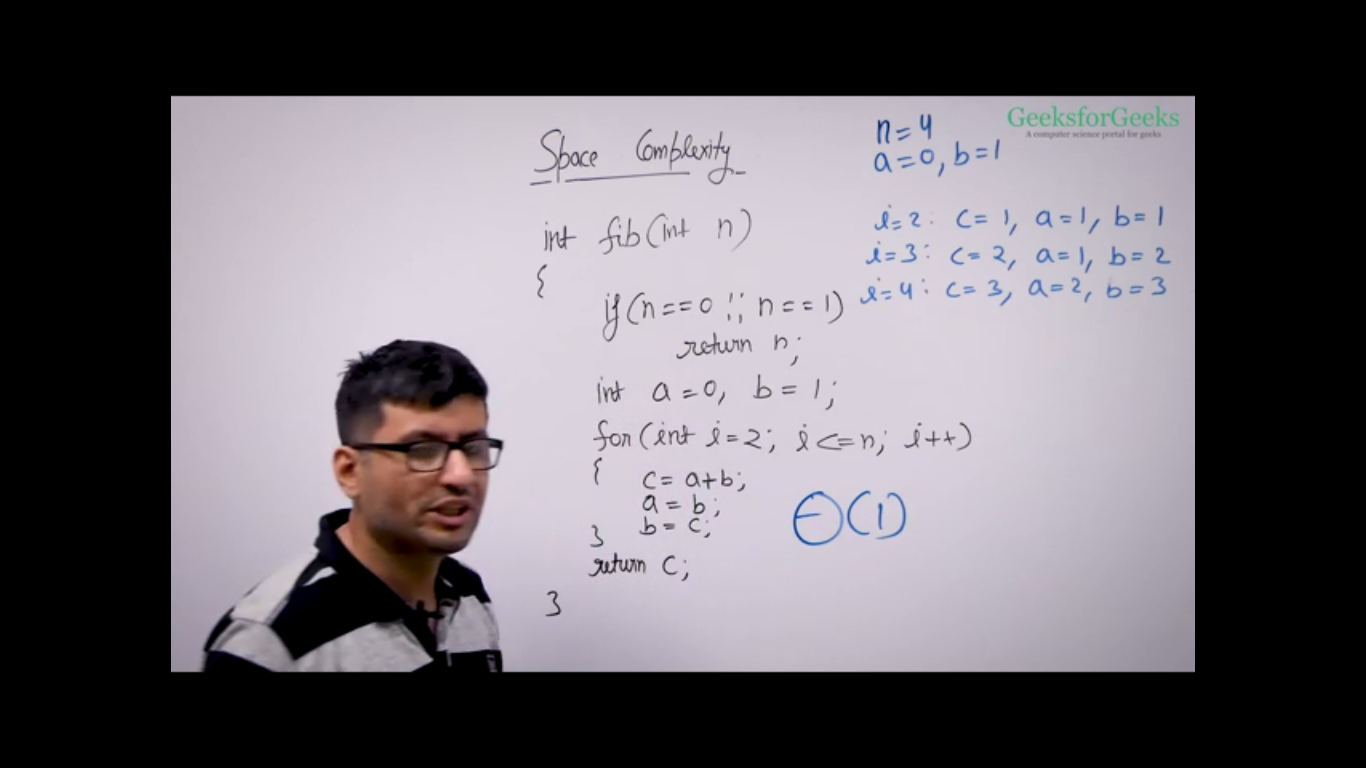 GeeksforGeeks
A computer science portal for geeks
Space Complexity
int fib(int n)
{
if(n==0 || n==1)
return n;
int a=0, b=1;
for(int i=2; i<=n; i++)
{ c=a+b;
a=b;
} b=c;
return c;
}
Θ(1)
n=4
a=0, b=1
i=2: c=1, a=1, b=1
i=3: c=2, a=1, b=2
i=4: c=3, a=2, b=3